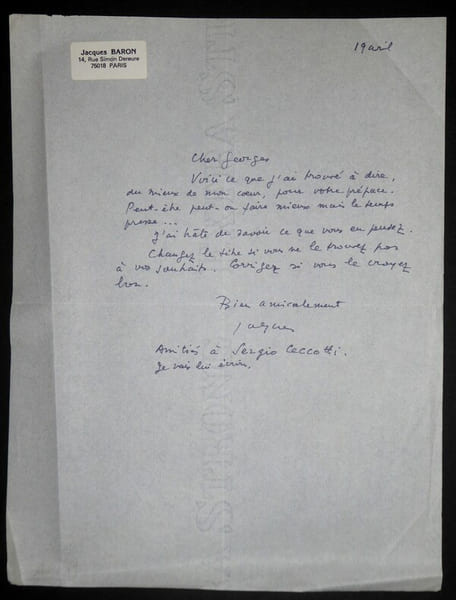 Jacques BARON
14, Rue Simon Dereure
75018 PARIS
19 avril
Cher Georges
Voici ce que j'ai trouvé à dire,
du mieux de mon cœur, pour votre préface.
Peut-être peut-on faire mieux mais le temps
presse...
J'ai hâte de savoir ce que vous en pensez.
Changez le titre si vous ne le trouvez pas
à vos souhaits. Corrigez si vous le croyez
bon.
Bien amicalement
Jacques
Amitiés à Sergio Ceccotti.
Je vais lui écrire.